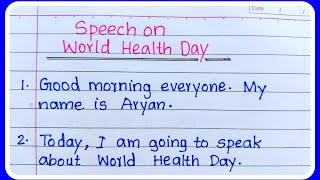 Speech on
World Health Day
1. Good morning everyone. My
name is Aryan.
2. Today, I am going to speak
about World Health Day.